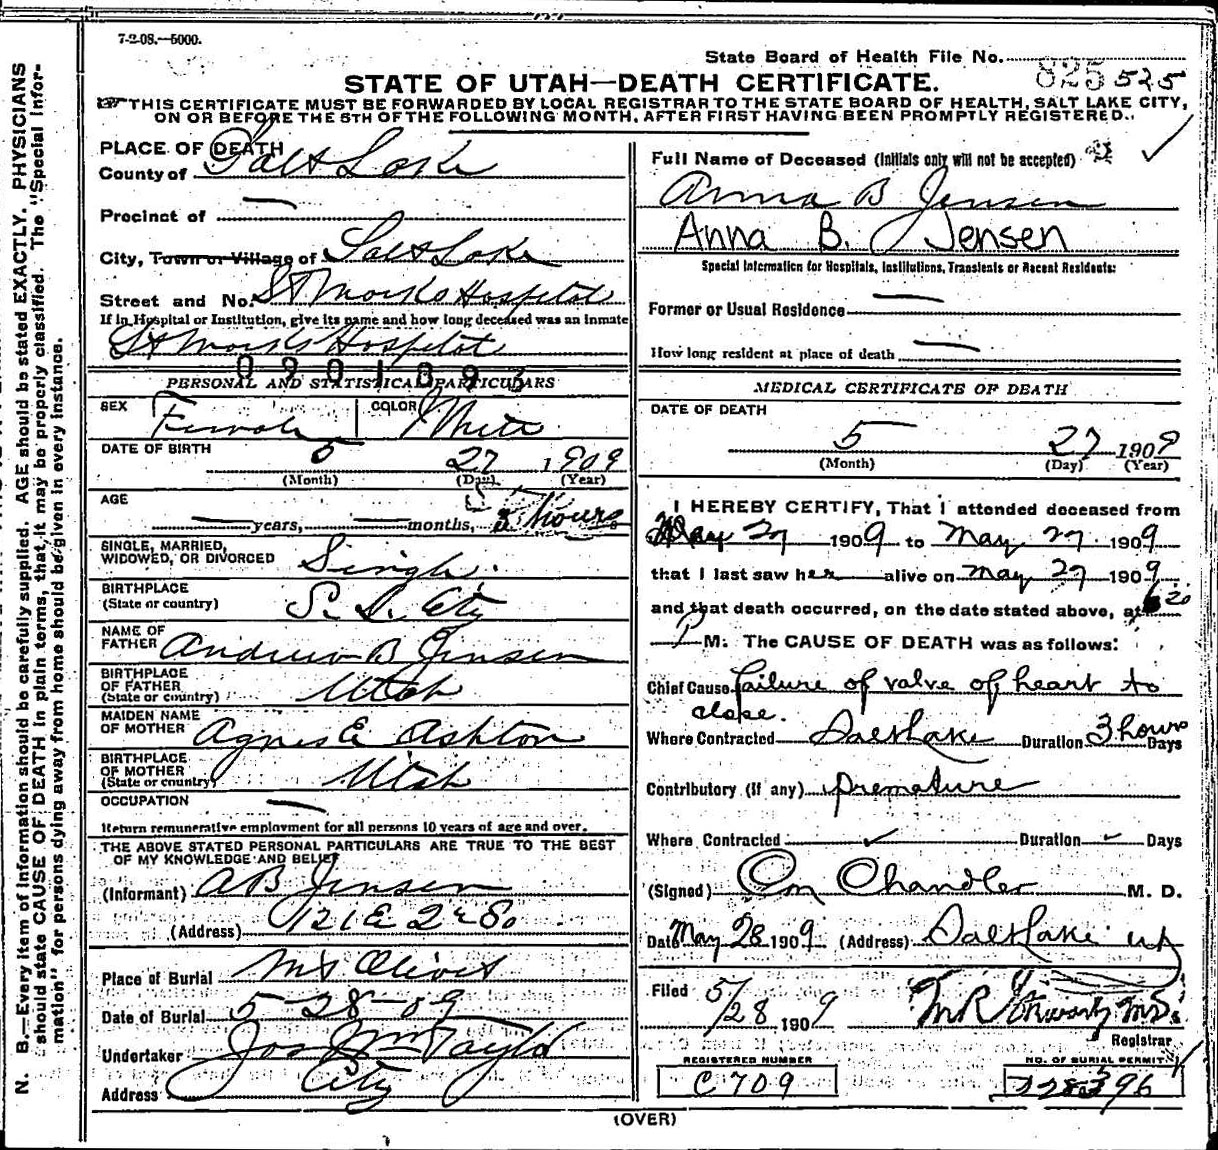 7-2-08.—5000.
State Board of Health File No. 825 525
STATE OF UTAH—DEATH CERTIFICATE.
THIS CERTIFICATE MUST BE FORWARDED BY LOCAL REGISTRAR TO THE STATE BOARD OF HEALTH, SALT LAKE CITY,
ON OR BEFORE THE 5TH OF THE FOLLOWING MONTH, AFTER FIRST HAVING BEEN PROMPTLY REGISTERED.
N. B.—Every item of information should be carefully supplied. AGE should be stated EXACTLY. PHYSICIANS
should state CAUSE OF DEATH in plain terms, that it may be properly classified. The "Special Infor-
mation" for persons dying away from home should be given in every instance.
PLACE OF DEATH
County of Salt Lake
Precinct of —
City, Town or Village of Salt Lake
Street and No. St Marks Hospital
If in Hospital or Institution, give its name and how long deceased was an inmate
St Marks Hospital
0901893
PERSONAL AND STATISTICAL PARTICULARS
SEX Female COLOR White
DATE OF BIRTH 5 27 1909
(Month) (Day) (Year)
AGE
— years, — months, 3 hours
SINGLE, MARRIED,
WIDOWED, OR DIVORCED Single.
BIRTHPLACE
(State or country) S. L. City
NAME OF
FATHER Andrew B Jensen
BIRTHPLACE
OF FATHER
(State or country) Utah
MAIDEN NAME
OF MOTHER Agnes E Ashton
BIRTHPLACE
OF MOTHER
(State or country) Utah
OCCUPATION —
Return remunerative employment for all persons 10 years of age and over.
THE ABOVE STATED PERSONAL PARTICULARS ARE TRUE TO THE BEST
OF MY KNOWLEDGE AND BELIEF
(Informant) A B Jensen
(Address) 121 E 2nd So
Place of Burial Mt Olivet
Date of Burial 5-28-09
Undertaker Jos Wm Taylor
Address City
Full Name of Deceased (Initials only will not be accepted)
Anna B Jensen
Anna B. Jensen
Special Information for Hospitals, Institutions, Transients or Recent Residents:
Former or Usual Residence —
How long resident at place of death —
MEDICAL CERTIFICATE OF DEATH
DATE OF DEATH
5 27 1909
(Month) (Day) (Year)
I HEREBY CERTIFY, That I attended deceased from
May 27 1909 to May 27 1909
that I last saw her alive on May 27 1909
and that death occurred, on the date stated above, at 6 20
P M. The CAUSE OF DEATH was as follows:
Chief Cause failure of valve of heart to
close.
Where Contracted Salt Lake Duration 3 hours Days
Contributory (if any) premature
Where Contracted Duration Days
(Signed) Chandler M. D.
Date May 28 1909 (Address) Salt Lake Ut
Filed 5/28 1909
Registrar
REGISTERED NUMBER
C 709
NO. OF BURIAL PERMIT
(OVER)